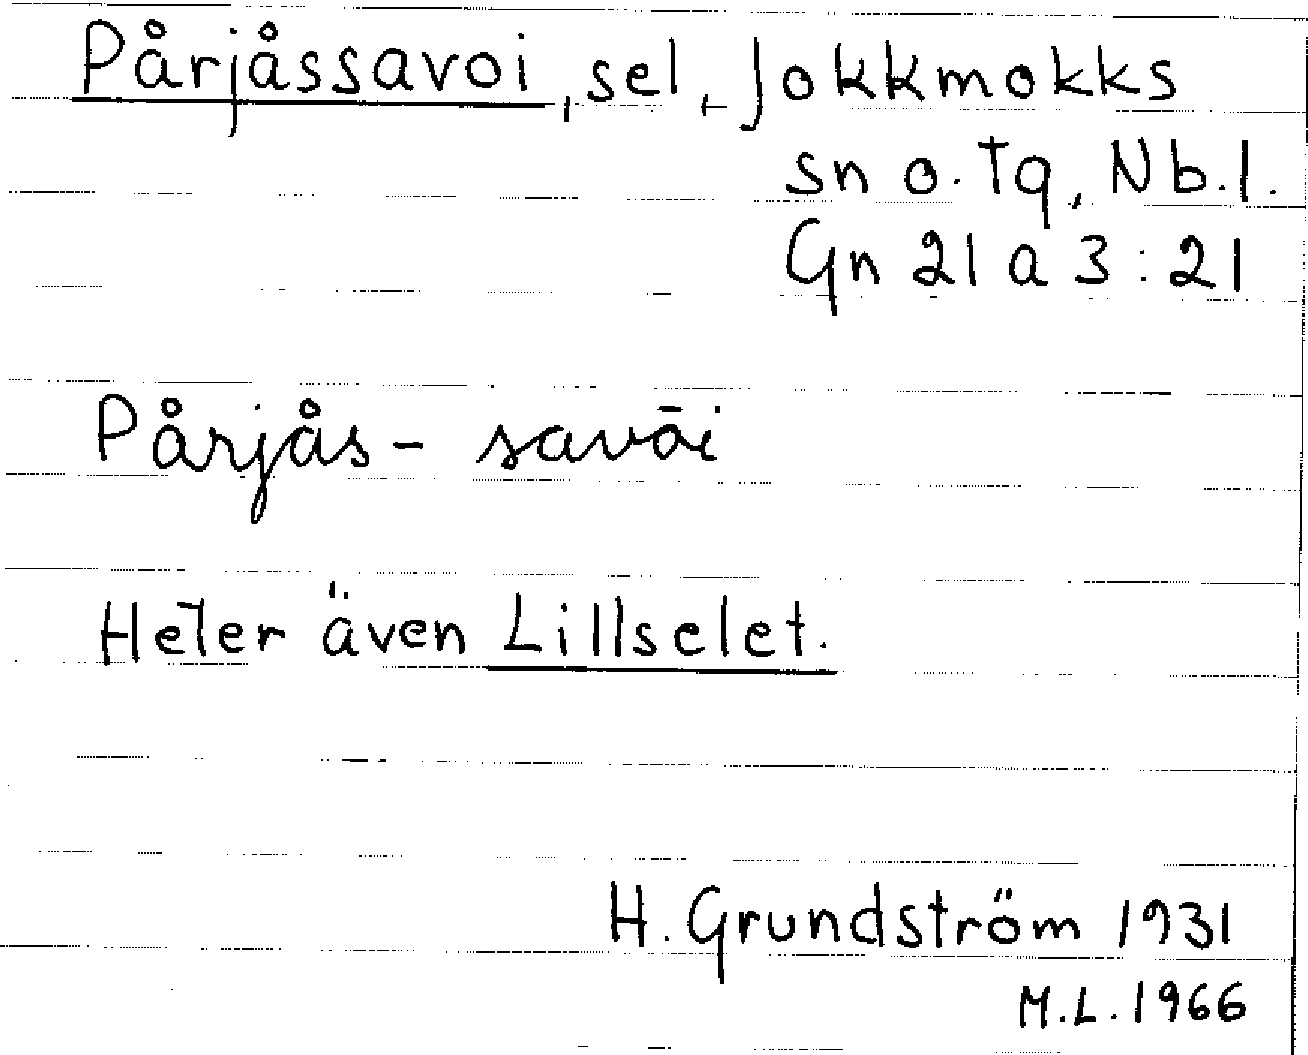 Pårjåssavoi, sel, Jokkmokks
sn o. tg, Nb. l.
Gn 21 a 3:21
Pårjås- savāi
Heter även Lillselet.
H. Grundström 1931
M.L. 1966